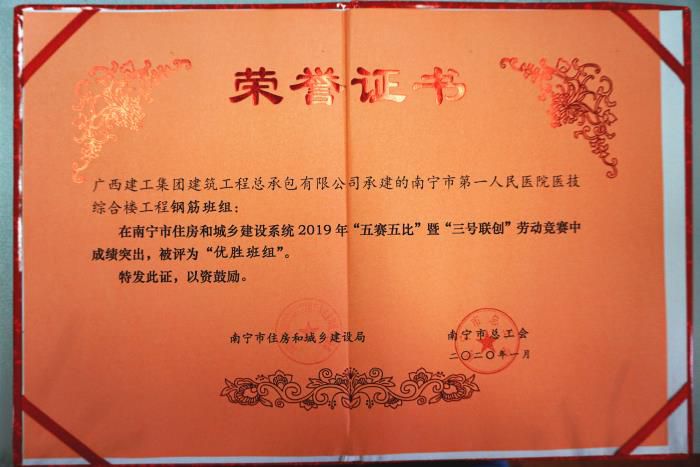 荣誉证书
广西建工集团建筑工程总承包有限公司承建的南宁市第一人民医院医技
综合楼工程钢筋班组：
在南宁市住房和城乡建设系统 2019 年“五赛五比”暨“三号联创”劳动竞赛中
成绩突出，被评为“优胜班组”。
特发此证，以资鼓励。
南宁市住房和城乡建设局
南宁市总工会
二〇二〇年一月